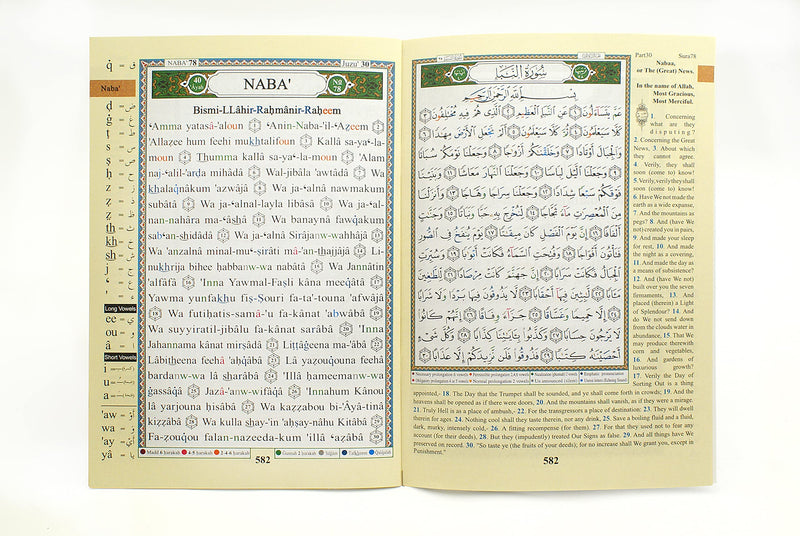 NABA' 78
Juzu' 30
40
Ayah
NABA'
No
78
Bismi-LLâhir-Raḥmânir-Raḥeem
Naba'
Long Vowels
ee
ou
â
Short Vowels
i
u
a
'aw
wa
'ay
yâ
ʻAmma yatasâ-'aloun 1 ʻAnin-Naba-'il-ʻAẓeem 2
'Allaẓee hum feehi mukhtalifoun 3 Kallâ sa-yaʻ-la-
moun 4 Thumma kallâ sa-yaʻ-la-moun 5 'Alam
najʻ-ʻalil-'arḍa mihâdâ 6 Wal-jibâla 'awtâdâ 7 Wa
khalaqnâkum 'azwâjâ 8 Wa ja-ʻalnâ nawmakum
subâtâ 9 Wa ja-ʻalnal-layla libâsâ 10 Wa ja-ʻal-
nan-nahâra ma-ʻâshâ 11 Wa banaynâ fawqakum
sabʻan-shidâdâ 12 Wa ja-ʻalnâ Sirâjanw-wahhâjâ 13
Wa 'anzalnâ minal-muʻ-ṣirâti mâ-'an-thajjâjâ 14 Li-
nukhrija bihee ḥabbanw-wa nabâtâ 15 Wa Jannâtin
'alfâfâ 16 'Inna Yawmal-Faṣli kâna meeqâtâ 17
Yawma yunfakhu fiṣ-Ṣouri fa-ta'-touna 'afwâjâ
18 Wa futiḥatis-samâ-'u fa-kânat 'abwâbâ 19
Wa suyyiratil-jibâlu fa-kânat sarâbâ 20 'Inna
Jahannama kânat mirṣâdâ 21 Liṭṭâgeena ma-'âbâ 22
Lâbitheena feehâ 'aḥqâbâ 23 Lâ yaẓouqouna feehâ
bardanw-wa lâ sharâbâ 24 'Illâ ḥameemanw-wa
gassâqâ 25 Jazâ-'anw-wifâqâ 26 'Innahum Kânou
lâ yarjouna ḥisâbâ 27 Wa kaẓẓabou bi-'Âyâ-tinâ
kiẓẓâbâ 28 Wa kulla shay-'in 'aḥṣay-nâhu Kitâbâ 29
Fa-ẓouqou falan-nazeeda-kum 'illâ ʻaẓâbâ 30
Madd 6 ḥarakah 4-5 ḥarakah 2-4-6 ḥarakah Gunnah 2 ḥarakah 'Idgâm Tafkheem Qalqalah
582
سُورَةُ النَّبَإِ
بِسْمِ اللَّهِ الرَّحْمَٰنِ الرَّحِيمِ
عَمَّ يَتَسَاءَلُونَ ١ عَنِ النَّبَإِ الْعَظِيمِ ٢ الَّذِي هُمْ فِيهِ مُخْتَلِفُونَ ٣
كَلَّا سَيَعْلَمُونَ ٤ ثُمَّ كَلَّا سَيَعْلَمُونَ ٥ أَلَمْ نَجْعَلِ الْأَرْضَ مِهَادًا ٦
وَالْجِبَالَ أَوْتَادًا ٧ وَخَلَقْنَاكُمْ أَزْوَاجًا ٨ وَجَعَلْنَا نَوْمَكُمْ سُبَاتًا
٩ وَجَعَلْنَا اللَّيْلَ لِبَاسًا ١٠ وَجَعَلْنَا النَّهَارَ مَعَاشًا ١١ وَبَنَيْنَا
فَوْقَكُمْ سَبْعًا شِدَادًا ١٢ وَجَعَلْنَا سِرَاجًا وَهَّاجًا ١٣ وَأَنْزَلْنَا
مِنَ الْمُعْصِرَاتِ مَاءً ثَجَّاجًا ١٤ لِنُخْرِجَ بِهِ حَبًّا وَنَبَاتًا ١٥ وَجَنَّاتٍ
أَلْفَافًا ١٦ إِنَّ يَوْمَ الْفَصْلِ كَانَ مِيقَاتًا ١٧ يَوْمَ يُنْفَخُ فِي الصُّورِ
فَتَأْتُونَ أَفْوَاجًا ١٨ وَفُتِحَتِ السَّمَاءُ فَكَانَتْ أَبْوَابًا ١٩ وَسُيِّرَتِ
الْجِبَالُ فَكَانَتْ سَرَابًا ٢٠ إِنَّ جَهَنَّمَ كَانَتْ مِرْصَادًا ٢١ لِلطَّاغِينَ
مَآبًا ٢٢ لَابِثِينَ فِيهَا أَحْقَابًا ٢٣ لَا يَذُوقُونَ فِيهَا بَرْدًا وَلَا شَرَابًا
٢٤ إِلَّا حَمِيمًا وَغَسَّاقًا ٢٥ جَزَاءً وِفَاقًا ٢٦ إِنَّهُمْ كَانُوا
لَا يَرْجُونَ حِسَابًا ٢٧ وَكَذَّبُوا بِآيَاتِنَا كِذَّابًا ٢٨ وَكُلَّ شَيْءٍ
أَحْصَيْنَاهُ كِتَابًا ٢٩ فَذُوقُوا فَلَنْ نَزِيدَكُمْ إِلَّا عَذَابًا ٣٠
Part30 Sura78
Nabaa,
or The (Great) News.
In the name of Allah,
Most Gracious,
Most Merciful.
1. Concerning
what are they
disputing?
2. Concerning the Great
News, 3. About which
they cannot agree.
4. Verily, they shall
soon (come to) know!
5. Verily, verily they shall
soon (come to) know!
6. Have We not made the
earth as a wide expanse,
7. And the mountains as
pegs? 8. And (have We
not) created you in pairs,
9. And made your sleep
for rest, 10. And made
the night as a covering,
11. And made the day as
a means of subsistence?
12. And (have We not)
built over you the seven
firmaments, 13. And
placed (therein) a Light
of Splendour? 14. And
do We not send down
from the clouds water in
abundance, 15. That We
may produce therewith
corn and vegetables,
16. And gardens of
luxurious growth?
17. Verily the Day of
Sorting Out is a thing
appointed,- 18. The Day that the Trumpet shall be sounded, and ye shall come forth in crowds; 19. And the
heavens shall be opened as if there were doors, 20. And the mountains shall vanish, as if they were a mirage.
21. Truly Hell is as a place of ambush,- 22. For the transgressors a place of destination: 23. They will dwell
therein for ages. 24. Nothing cool shall they taste therein, nor any drink, 25. Save a boiling fluid and a fluid,
dark, murky, intensely cold,- 26. A fitting recompense (for them). 27. For that they used not to fear any
account (for their deeds), 28. But they (impudently) treated Our Signs as false. 29. And all things have We
preserved on record. 30. "So taste ye (the fruits of your deeds); for no increase shall We grant you, except in
Punishment."
582